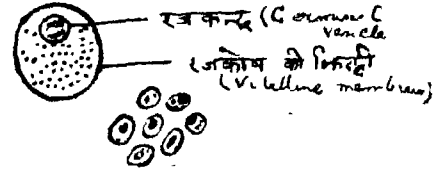 रजकन्द्र (Germinal
vesicle
रजकोष की झिल्ली
(Vitelline membrane)